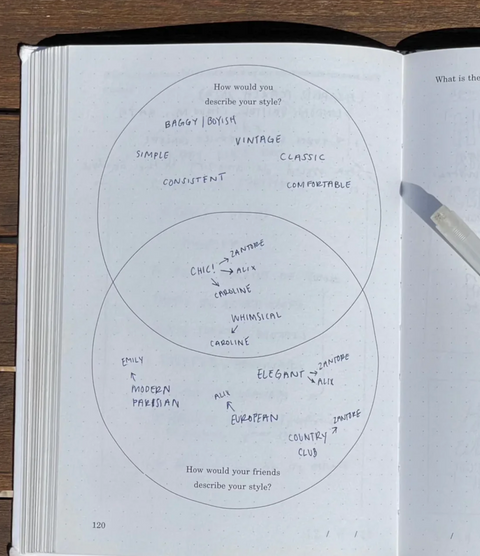 How would you
describe your style?
What is the
BAGGY / BOYISH
VINTAGE
SIMPLE
CLASSIC
CONSISTENT
COMFORTABLE
ZANTORE
CHIC! → ALIX
CAROLINE
WHIMSICAL
CAROLINE
EMILY
ZANTORE
ELEGANT → ALIX
MODERN
PARISIAN
ALIX
EUROPEAN
ZANTORE
COUNTRY
CLUB
How would your friends
describe your style?
120
/ /
/